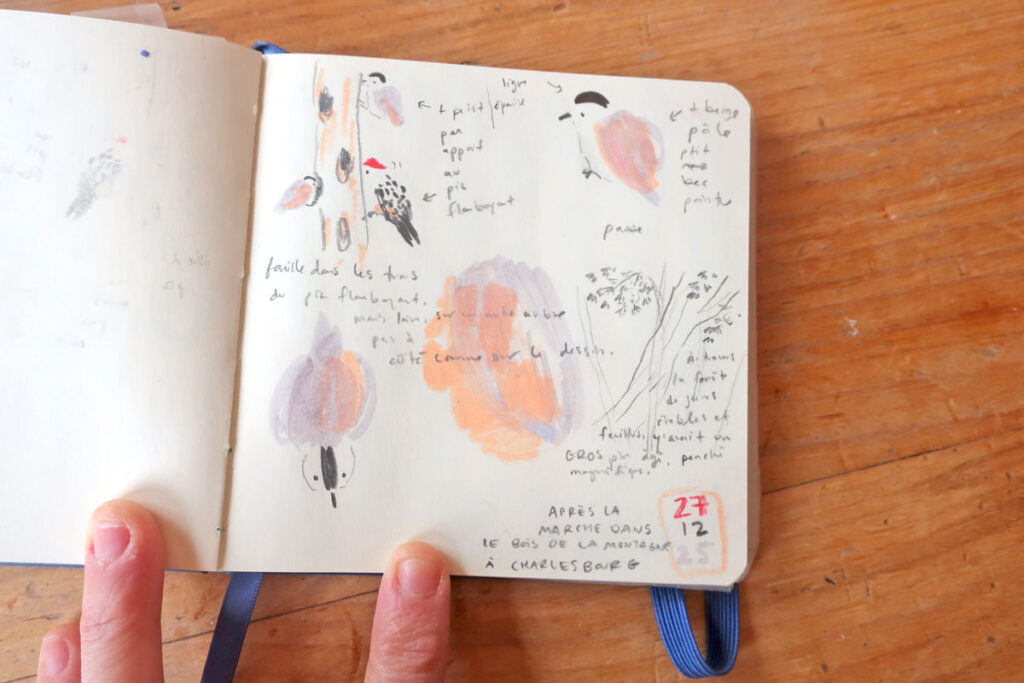 + petit / épaisse
par
apport
au
pic
flamboyant
ligne
+ beige
pâle
ptit
bec
pointu
fouille dans les trous
du pic flamboyant.
mais loin, sur un autre arbre
pas à
côté comme sur le dessin.
à travers
la forêt
de jeunes
érables et
feuillus, y'avait un
GROS pin âgé, penché
magnifique.
APRÈS LA
MARCHE DANS
LE BOIS DE LA MONTAGNE
À CHARLESBOURG
27
12
25